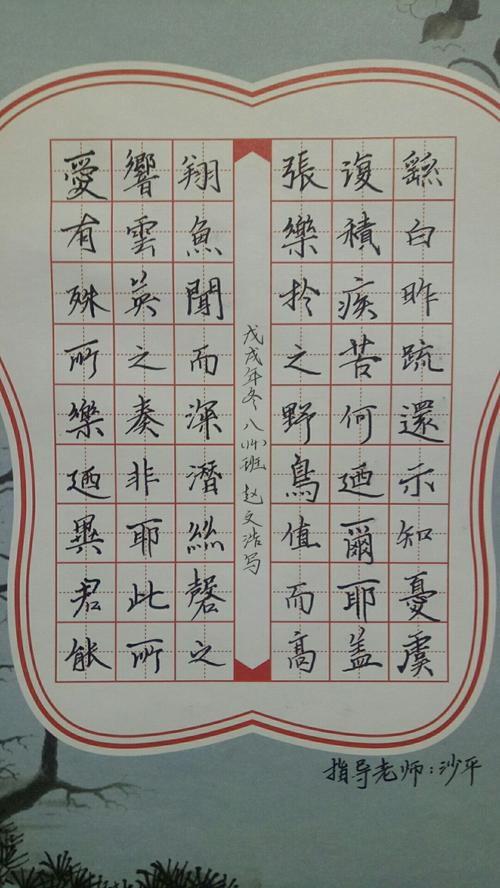 繇白昨疏還示知憂虞
復積疾苦何迺爾耶盖
張樂扵之野鳥值而高
翔魚聞而深潛絲磬之
響雲英之奏非耶此所
愛有殊所樂迺異君能
戊戌年冬八班 赵文浩写
指导老师：沙平